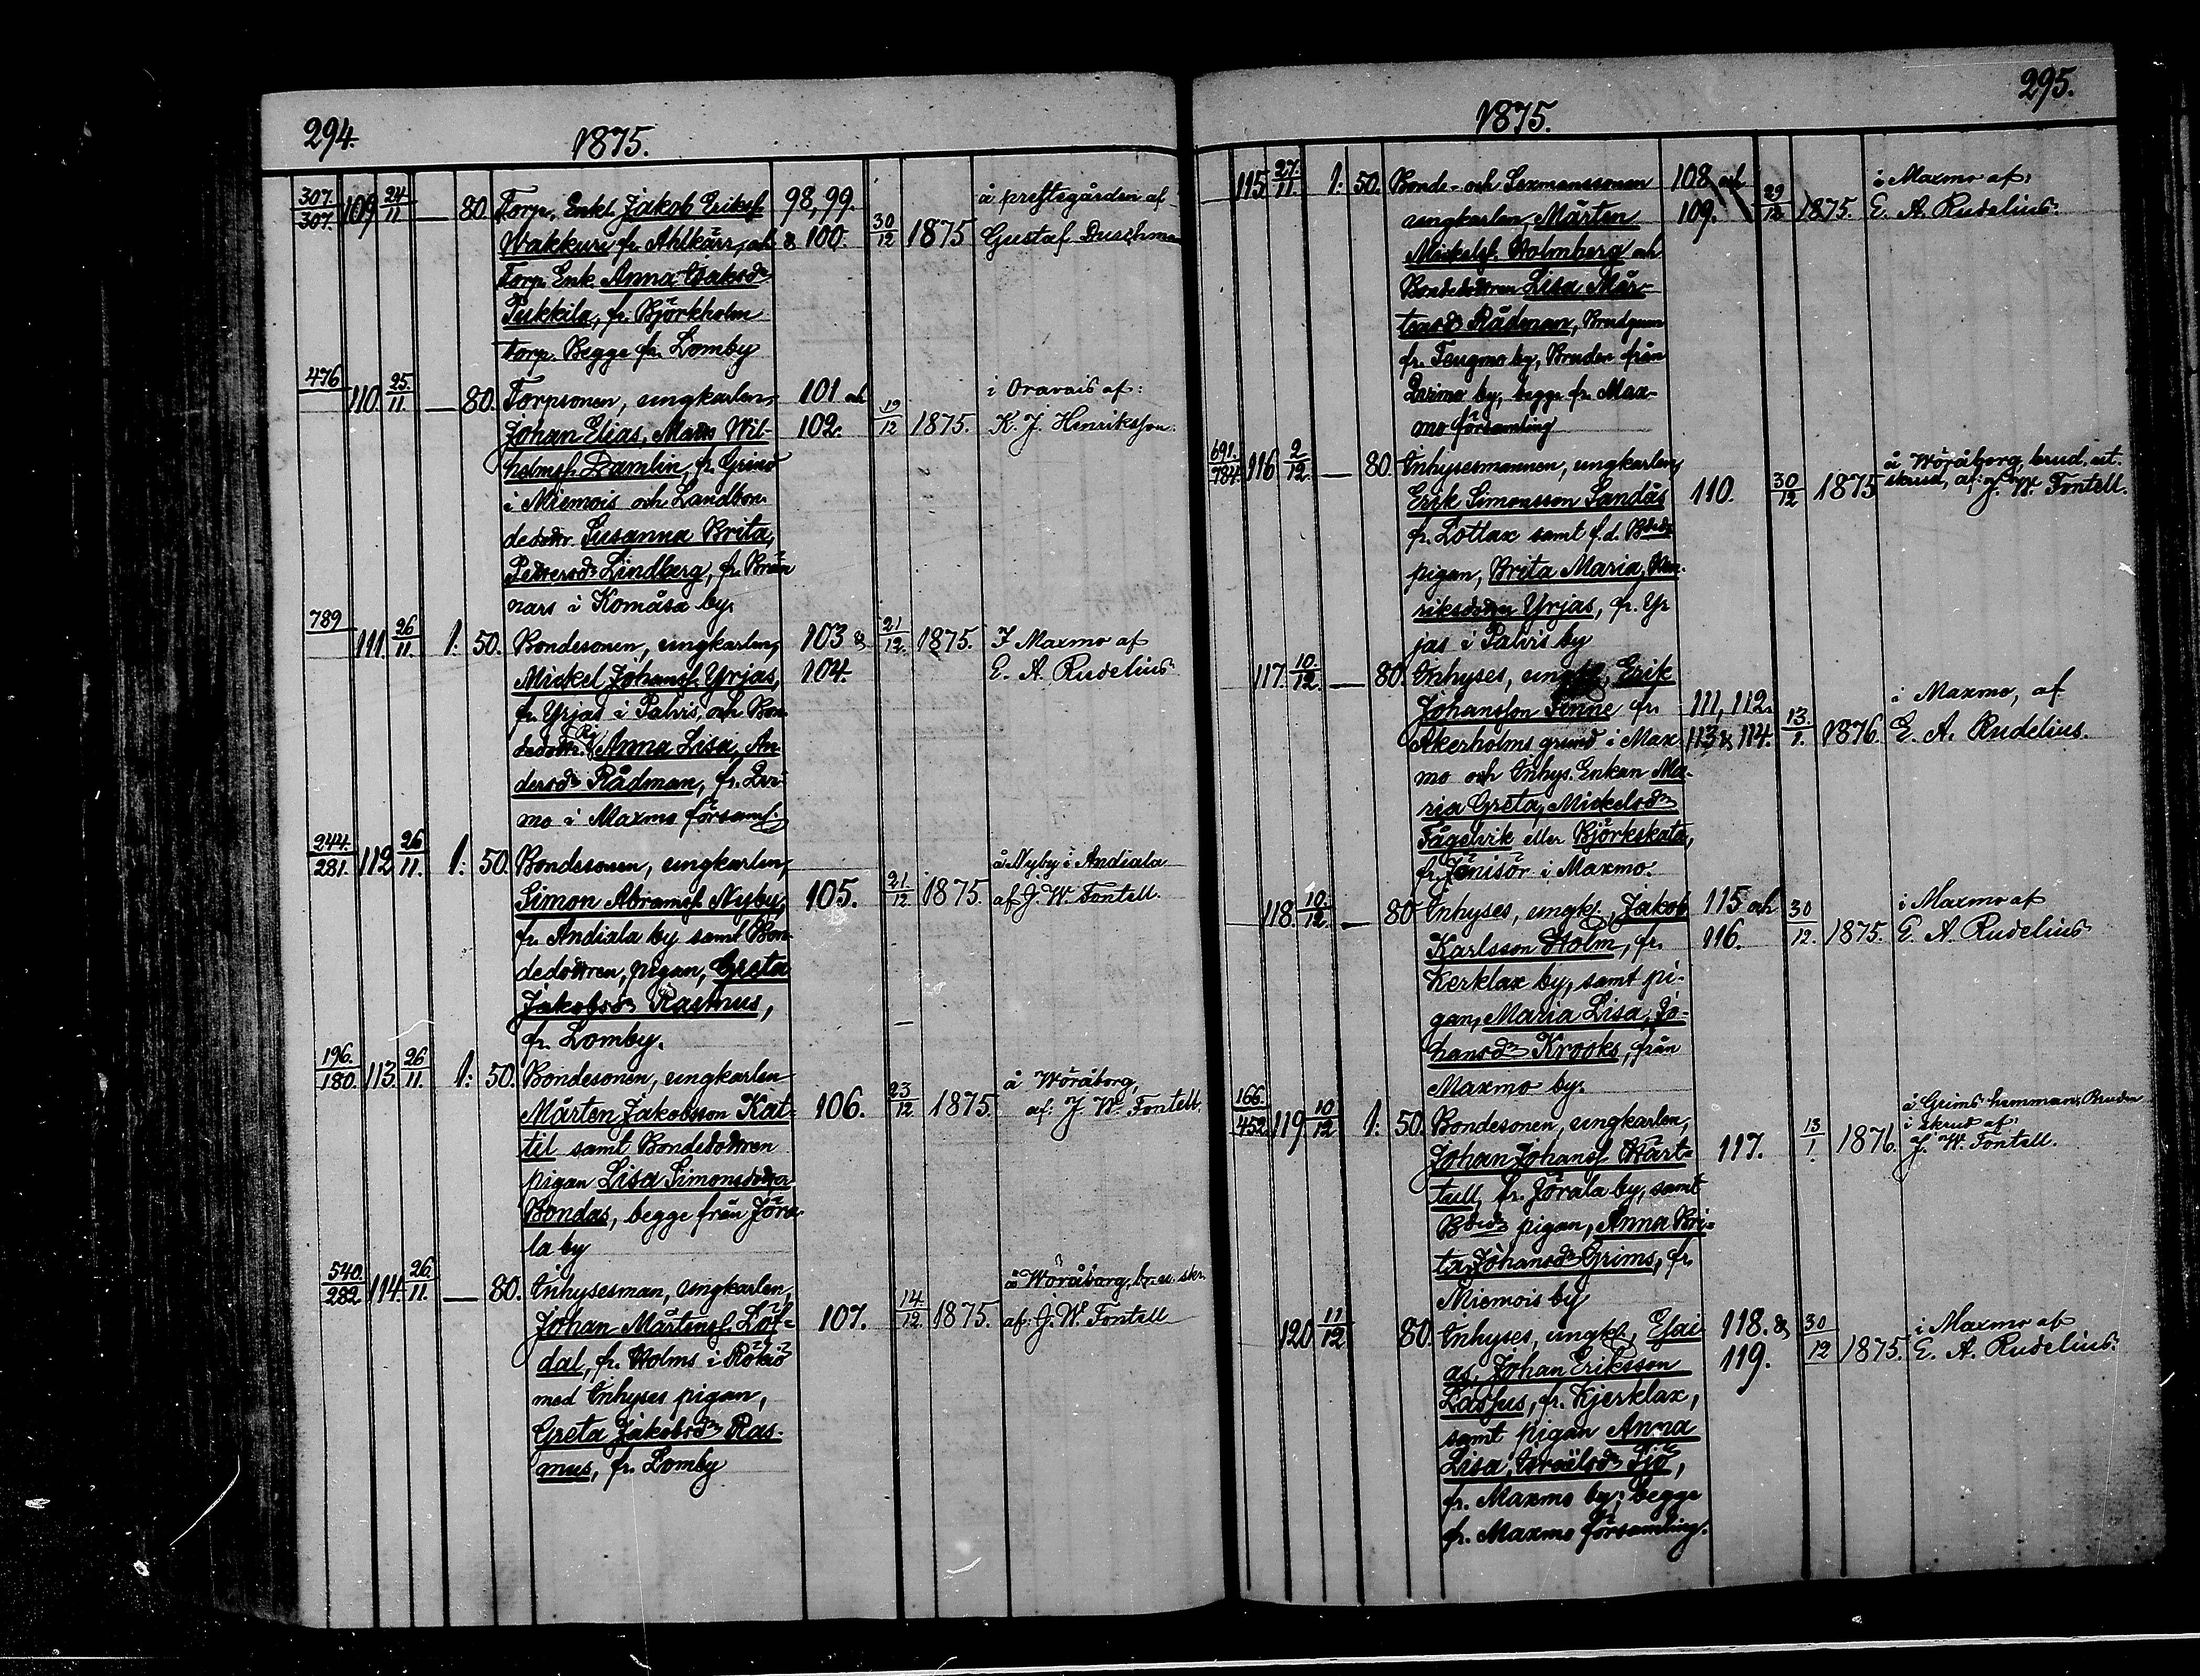 294.
1875.
307. 307. 109 24 11 — 80. Torp. Enkl. Jakob Erikss. 98, 99.
Wakkuri fr. Ahlkärr, och & 100. 30 12 1875
Torp. Enk. Anna Isaksdr
Pukkila, fr. Björkholm
torp. Begge fr. Lomby
å prestgården af
Gustaf
476 110. 25. 11. — 80. Torpsonen, ungkarlen, 101 och
Johan Elias, Matts Wil- 102. 19 12 1875.
helmss. Damlin, fr. Grind
i Miemois och Landbon-
dedottr. Susanna Brita,
Pettersdr Lindberg, fr. Brän
nars i Komåsa by.
i Oravais af:
K. J. Henriksson.
789 111. 26 11. 1: 50. Bondesonen, ungkarlen, 103 & 21 12. 1875.
Mickel Johanss. Yrjas, 104.
fr. Yrjas i Palvis, och Bon-
dedottr. Pig. Anna Lisa An-
dersdr Rådman, fr. Qvi-
mo i Maxmo församl.
I Maxmo af
E. A. Rudelius
244. 281. 112 26 11. 1: 50. Bondesonen, ungkarlen,
Simon Abramss. Nyby, 105. 21. 12 1875.
fr. Andiala by samt Bon-
dedottren, pigan, Greta
Jakobsdr Rasmus,
fr. Lomby.
å Nyby i Andiala
af J. W. Fontell.
196. 180. 113. 26 11. 1: 50. Bondesonen, ungkarlen
Mårten Jakobsson Kat- 106. 23 12 1875.
til samt Bondedottren
pigan Lisa Simonsdotter
Bondas, begge från Jöra-
la by
å Wöråborg,
af: J. W. Fontell.
540. 282. 114. 26 11. — 80. Inhysesman, ungkarlen,
Johan Mårtenss. Löf- 107. 14. 12. 1875.
dal, fr. Holms i Rökiö
med Inhyses pigan,
Greta Jakobsdr Ras-
mus, fr. Lomby
å Wöråborg, br. u. skr.
af: J. W. Fontell
295.
1875.
115 27. 11. 1: 50. Bonde- och Sexmanssonen 108 och
ungkarlen, Mårten 109. 29 12 1875.
Mickelss. Holmberg och
Bondedottren Lisa Mår-
tensdr Rådman, Brudgum
fr. Teugmo by, Bruden från
Qvimo by, begge fr. Max-
mo församling
i Maxmo af:
E. A. Rudelius.
691. 784. 116 2 12. — 80. Inhysesmannen, ungkarlen,
Erik Simonsson Sandås 110. 30 12 1875
fr. Lotlax samt f.d. Bdedr
pigan, Brita Maria, Hen-
riksdotter Yrjas, fr. Yr
jas i Palvis by
å Wöråborg, brud. ut.
skrud, af: J. W. Fontell.
117. 10. 12. — 80. Inhyses, ungkl, Erik
Johansson Finne fr. 111, 112.
Åkerholms grund i Max 113 & 114. 13. 1. 1876.
mo och Inhys. Enkan Ma-
ria Greta, Mickelsdr
Fågelvik eller Björkskata,
fr. Jönisör i Maxmo.
i Maxmo, af
E. A. Rudelius.
118. 10 12. — 80 Inhyses, ungkl, Jakob 115 och 30
Karlsson Holm, fr. 116. 12. 1875.
Kerklax by, samt pi-
gan, Maria Lisa, Jo-
hansdr Krooks, från
Maxmo by.
i Maxmo af
E. A. Rudelius
166. 452. 119 10 12 1: 50. Bondesonen, ungkarlen,
Johan Johanss. Härt- 117. 13 1. 1876.
tull, fr. Jörala by, samt
Bdedr pigan, Anna Bri-
ta Johansdr Grims, fr.
Miemois by
å Grims hemman, Bruden
i skrud af:
J. W. Fontell.
120 11 12. 80. Inhyses, ungkl, Esai- 118. & 30
as, Johan Eriksson 119. 12 1875.
Lassus, fr. Kjerklax,
samt pigan Anna
Lisa, Israelsdr Sjö,
fr. Maxmo by; begge
fr. Maxmo församling.
i Maxmo af
E. A. Rudelius.